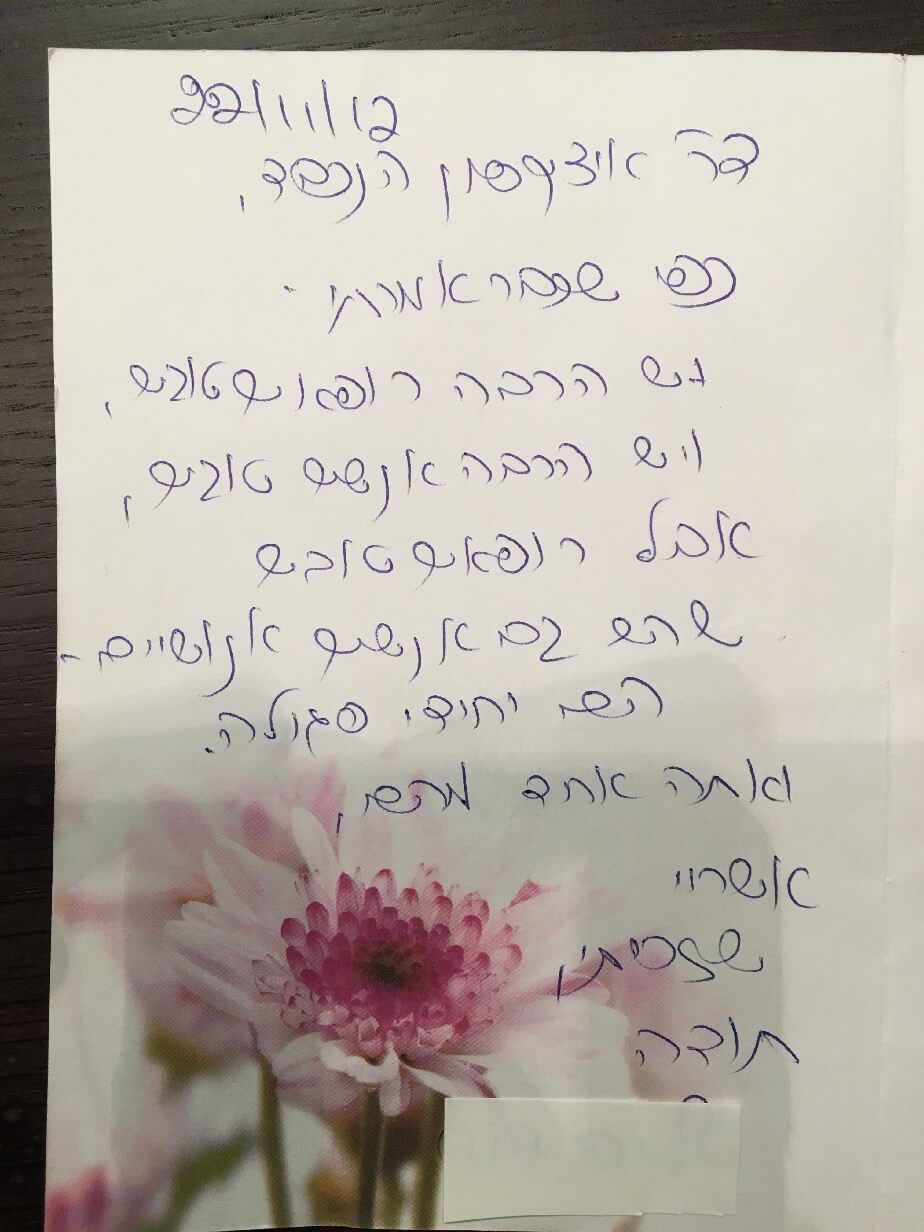 דר' איציקסון הנכבד,
כפי שכבר אמרתי -
יש הרבה רופאים טובים,
ויש הרבה אנשים טובים,
אבל רופאים טובים
שהם גם אנשים אנושיים -
הם יחידי סגולה.
ואתה אחד מהם,
אשריי
שזכיתי,
תודה